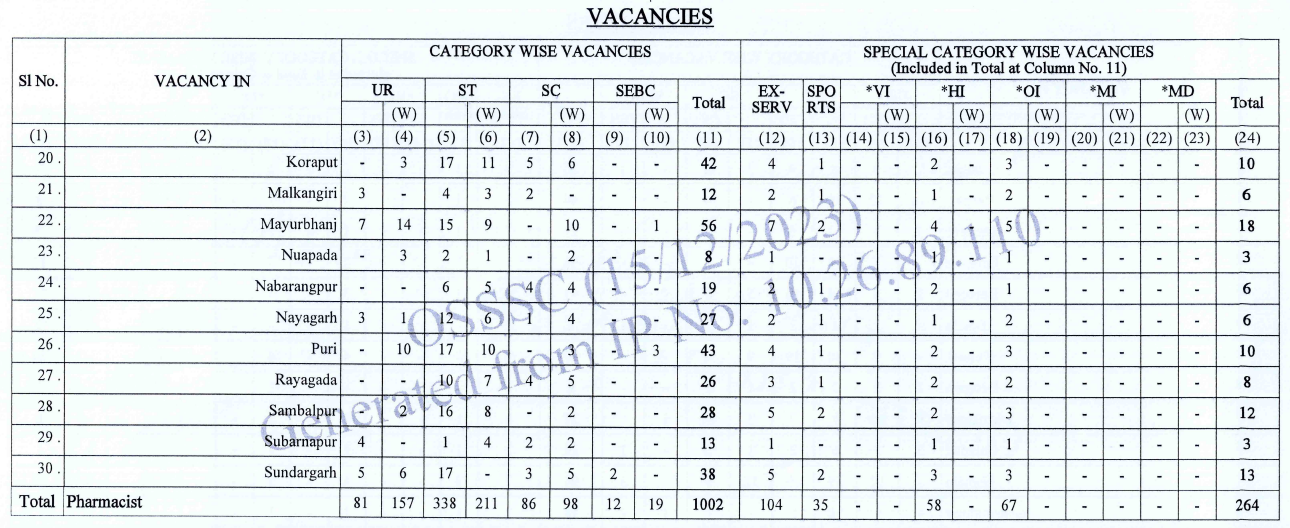 VACANCIES
Sl No. VACANCY IN CATEGORY WISE VACANCIES SPECIAL CATEGORY WISE VACANCIES
(Included in Total at Column No. 11)
UR ST SC SEBC Total EX-SERV SPORTS *VI *HI *OI *MI *MD Total
(W) (W) (W) (W) (W) (W) (W) (W) (W)
(1) (2) (3) (4) (5) (6) (7) (8) (9) (10) (11) (12) (13) (14) (15) (16) (17) (18) (19) (20) (21) (22) (23) (24)
20. Koraput - 3 17 11 5 6 - - 42 4 1 - - 2 - 3 - - - - - 10
21. Malkangiri 3 - 4 3 2 - - - 12 2 1 - - 1 - 2 - - - - - 6
22. Mayurbhanj 7 14 15 9 - 10 - 1 56 7 2 - - 4 - 5 - - - - - 18
23. Nuapada - 3 2 1 - 2 - - 8 1 - - - 1 - 1 - - - - - 3
24. Nabarangpur - - 6 5 4 4 - - 19 2 1 - - 2 - 1 - - - - - 6
25. Nayagarh 3 1 12 6 1 4 - - 27 2 1 - - 1 - 2 - - - - - 6
26. Puri - 10 17 10 - 3 - 3 43 4 1 - - 2 - 3 - - - - - 10
27. Rayagada - - 10 7 4 5 - - 26 3 1 - - 2 - 2 - - - - - 8
28. Sambalpur - 2 16 8 - 2 - - 28 5 2 - - 2 - 3 - - - - - 12
29. Subarnapur 4 - 1 4 2 2 - - 13 1 - - - 1 - 1 - - - - - 3
30. Sundargarh 5 6 17 - 3 5 2 - 38 5 2 - - 3 - 3 - - - - - 13
Total Pharmacist 81 157 338 211 86 98 12 19 1002 104 35 - - 58 - 67 - - - - - 264
OSSSC (15/12/2023)
Generated from IP No. 10.26.89.110